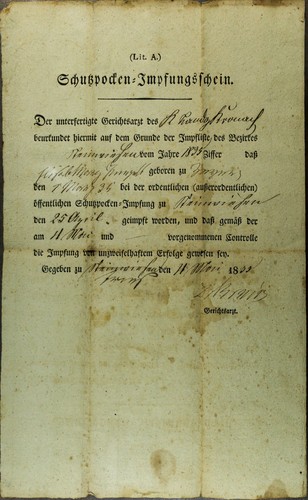 (Lit. A.)
Schutzpocken-Impfungsschein.
Der unterfertigte Gerichtsarzt des K. Landg. Kronach
beurkundet hiermit auf dem Grunde der Impfliste, des Bezirkes
vom Jahre 1835 Ziffer daß
geboren zu
den 1 bei der ordentlichen (außerordentlichen)
öffentlichen Schutzpocken-Impfung zu
den 25 April geimpft worden, und daß gemäß der
am 11 Mai und vorgenommenen Controlle
die Impfung von unzweifelhaftem Erfolge gewesen sey.
Gegeben zu den 11 Mai 1835
Gerichtsarzt.